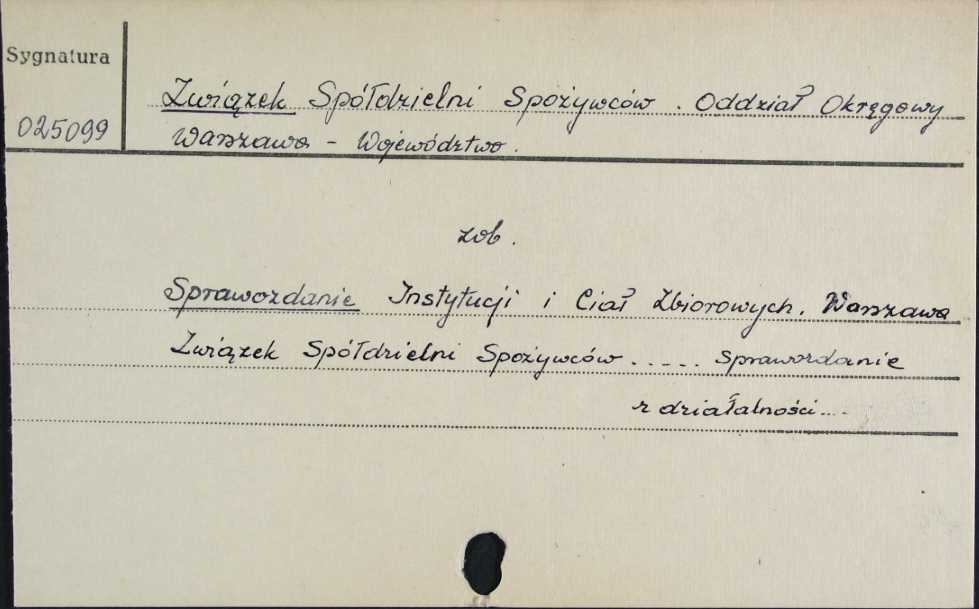 Sygnatura
025099
Związek Spółdzielni Spożywców. Oddział Okręgowy
Warszawa - Województwo.
zob.
Sprawozdanie Instytucji i Ciał Zbiorowych. Warszawa
Związek Spółdzielni Spożywców ..... sprawozdanie
z działalności....